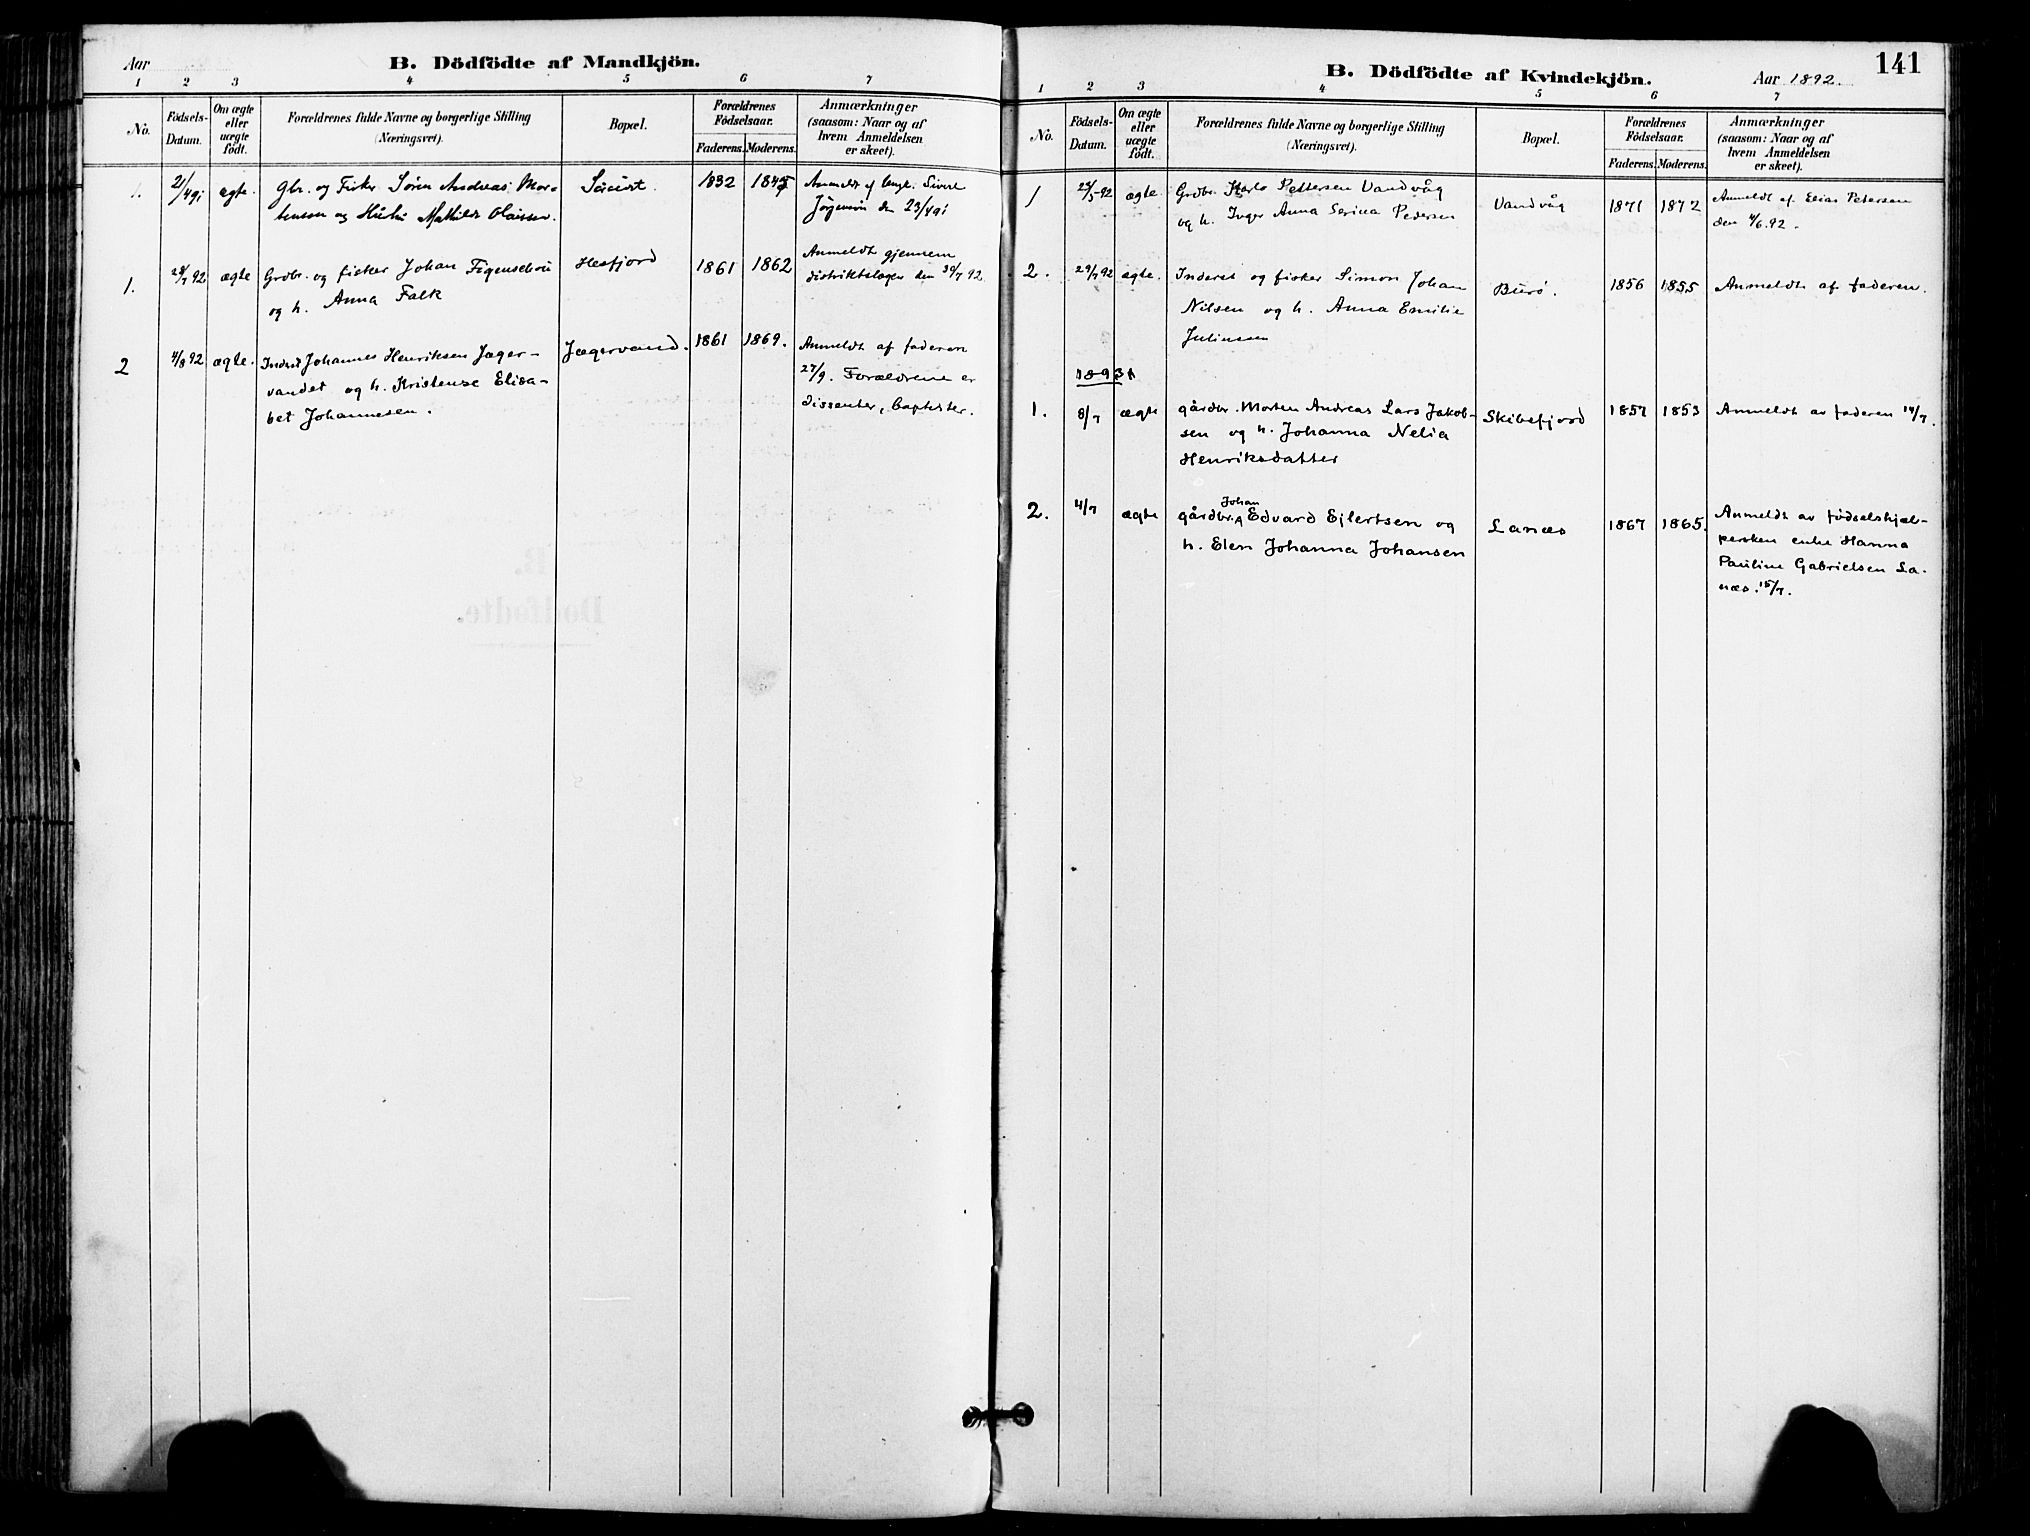 Aar
B. Dödfödte af Mandkjön.
1 2 3 4 5 6 7
No.
Födsels-Datum.
Om ægte eller uægte födt.
Forældrenes fulde Navne og borgerlige Stilling
(Næringsvei).
Bopæl.
Forældrenes Födselsaar.
Faderens. Moderens.
Anmærkninger
(saasom: Naar og af
hvem Anmeldelsen
er skeet).
1. 21/4 91 ægte. Gbr. og Fisker Søren Andreas Mor-
tensen og Hustru Mathilde Olaissen.
1832 1845
Anmeldt af Sivert
Jørgensen den 23/4 91
1. 92 ægte Grdbr. og fisker Johan Figenschou
og h. Anna Falk
Hesfjord 1861 1862
Anmeldt gjennem
distriktslægen den 30/7 92
2 4/8 92 ægte. Inderst Johannes Henriksen Jæger-
vandet og h. Kristense Elisa-
bet Johannesen.
Jægervand. 1861 1869.
Anmeldt af faderen
27/9. Forældrene er
dissenter, baptister.
B.
Dødfødte.
B. Dödfödte af Kvindekjön.
Aar 1892.
141
1 2 3 4 5 6 7
No.
Födsels-Datum.
Om ægte eller uægte födt.
Forældrenes fulde Navne og borgerlige Stilling
(Næringsvei).
Bopæl.
Forældrenes Födselsaar.
Faderens. Moderens.
Anmærkninger
(saasom: Naar og af
hvem Anmeldelsen
er skeet).
1 25/5-92 ægte Grdbr. Karlo Pettersen Vandvåg
og h. Inger Anna Serina Pedersen
Vandvåg 1871 1872
Anmeldt af Elias Petersen
den 4/6.92.
2. 29/7 92 ægte. Inderst og fisker Simon Johan
Nilsen og h. Anna Emilie
Juliussen
Burø. 1856 1855 Anmeldt af faderen.
1893
1. 8/7 ægte gårdbr. Morten Andreas Lars Jakob-
sen og h. Johanna Nelia
Henriksdatter
Skibsfjord 1857 1853 Anmeldt av faderen 14/7.
2. 4/7 ægte gårdbr. Johan Edvard Ejlertsen og
h. Elen Johanna Johansen
Lanæs 1867 1865.
Anmeldt av fødselshjæl-
persken enke Hanna
Pauline Gabrielsen La-
næs. 15/7.